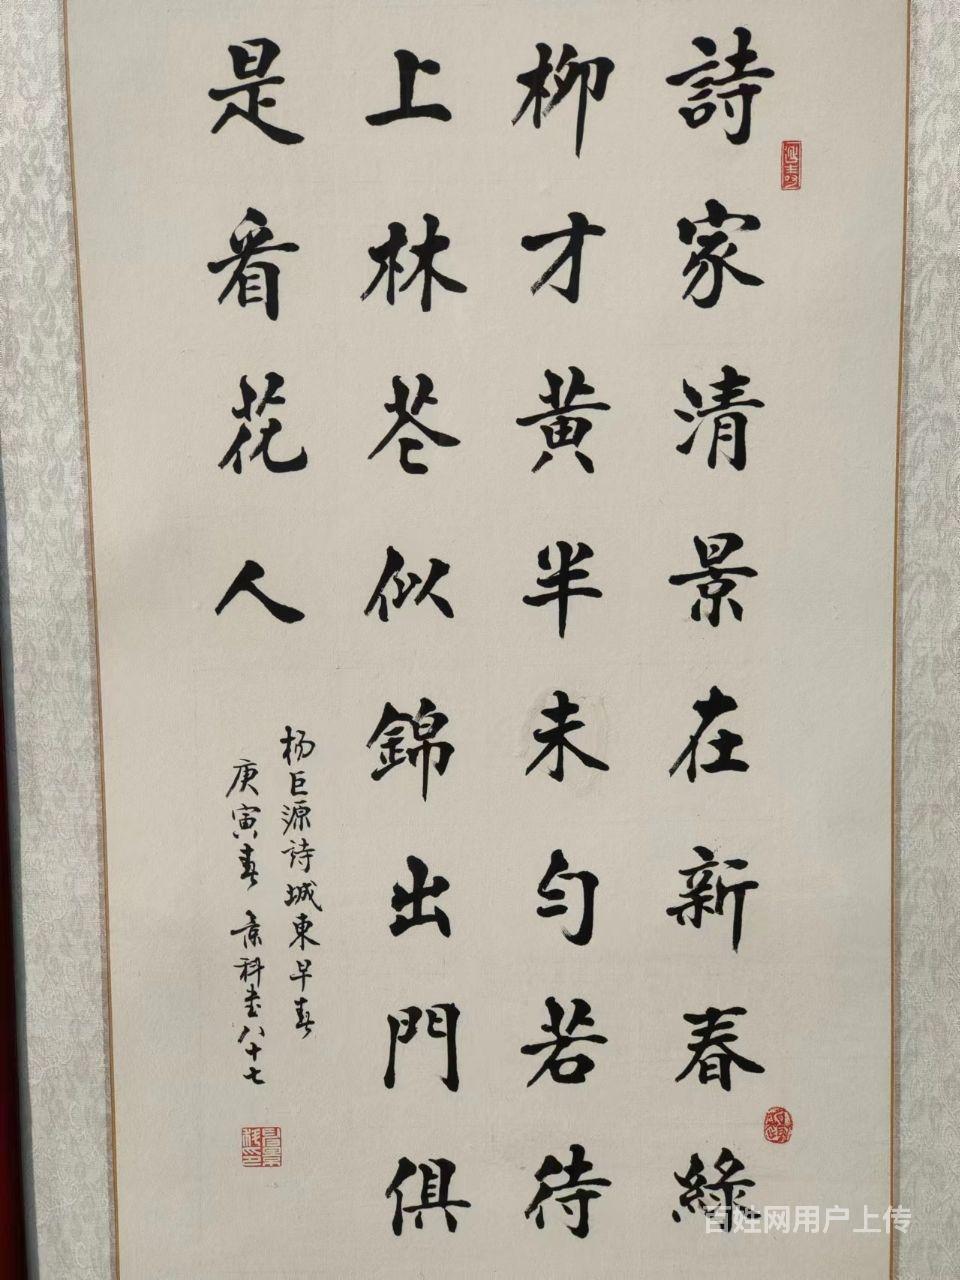 詩家清景在新春綠
柳才黃半未勻若待
上林苍似錦出門俱
是看花人
杨巨源詩城東早春
庚寅春景科书八十七
百姓网用户上传